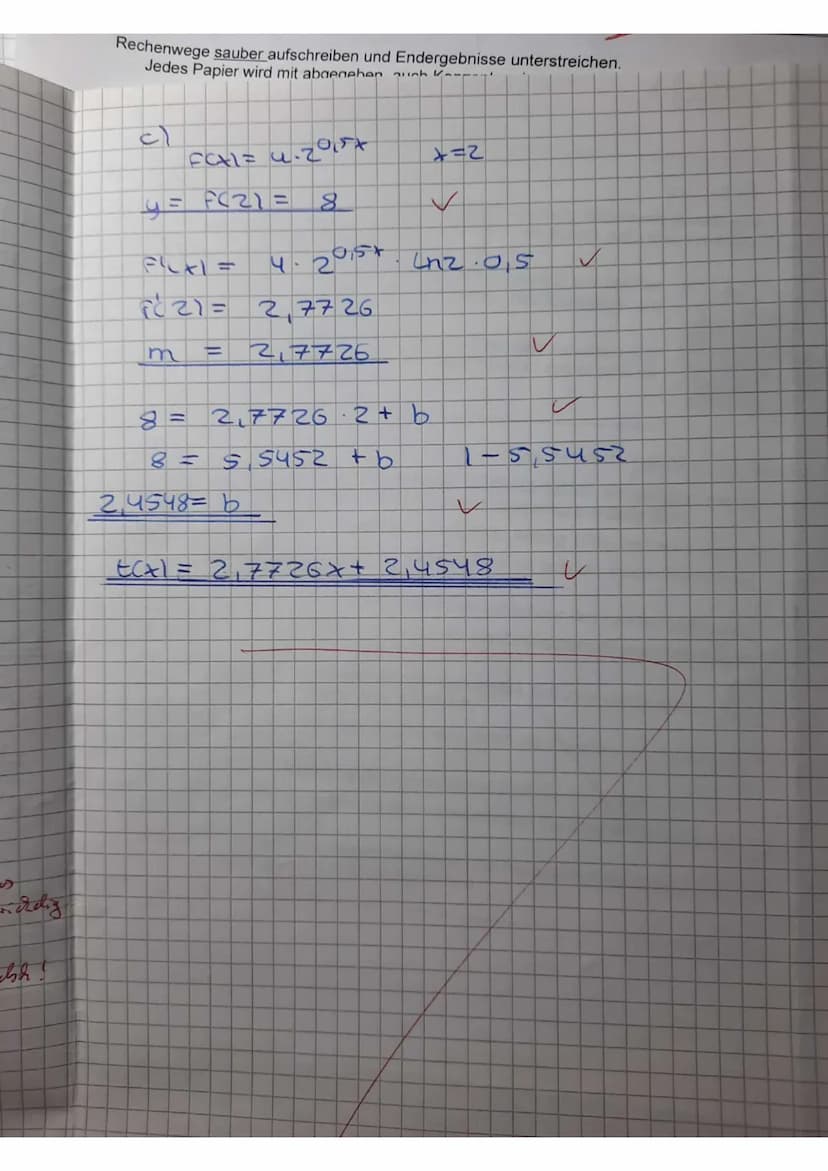 Rechenwege sauber aufschreiben und Endergebnisse unterstreichen.
Jedes Papier wird mit abgegeben, auch
c)
f(x) = 4 · 2^0,5x x=2
y = f(2) = 8 ✓
f'(x) = 4 · 2^0,5x · ln2 · 0,5 ✓
f'(2) = 2,7726
m = 2,7726 ✓
8 = 2,7726 · 2 + b ✓
8 = 5,5452 + b | - 5,5452
2,4548 = b ✓
t(x) = 2,7726x + 2,4548 ✓